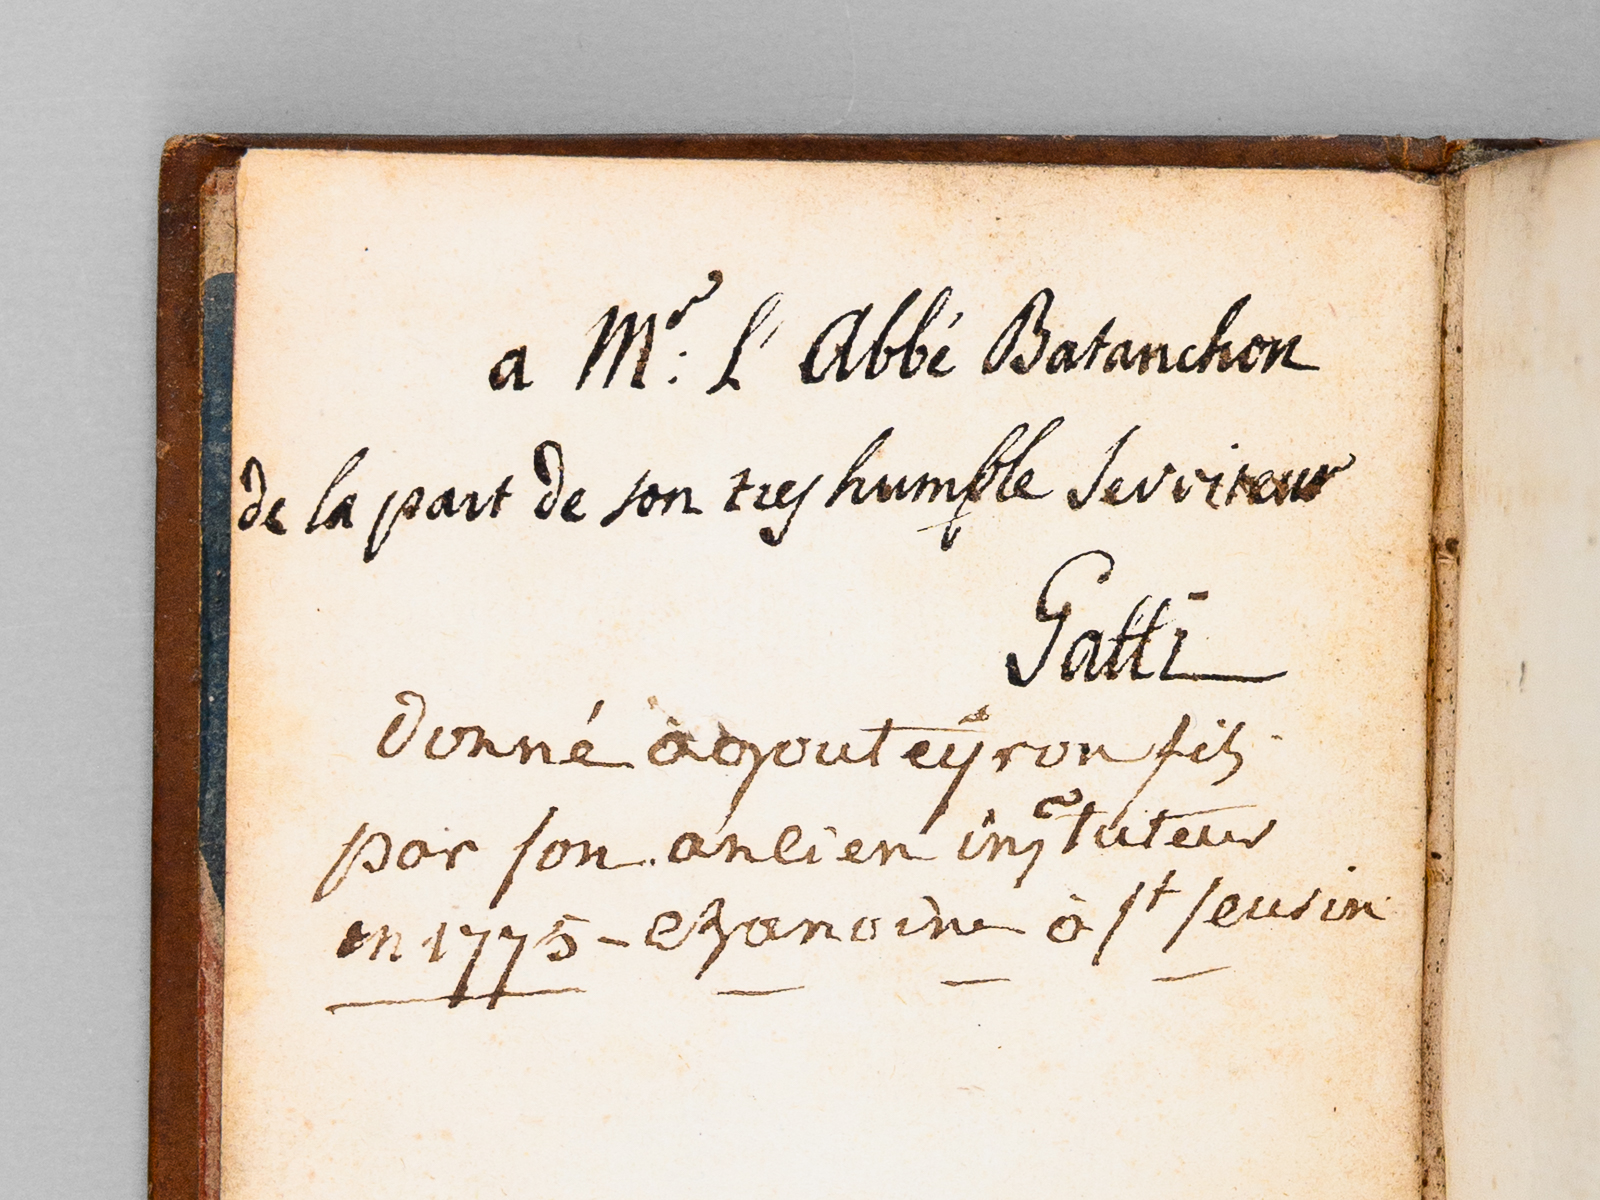 a Mr: L' Abbé Batanchon
de la part de son tres humble Serviteur
Gatti
donné à gouteyron fils
par son ancien instituteur
en 1775 - chanoine à st seurin